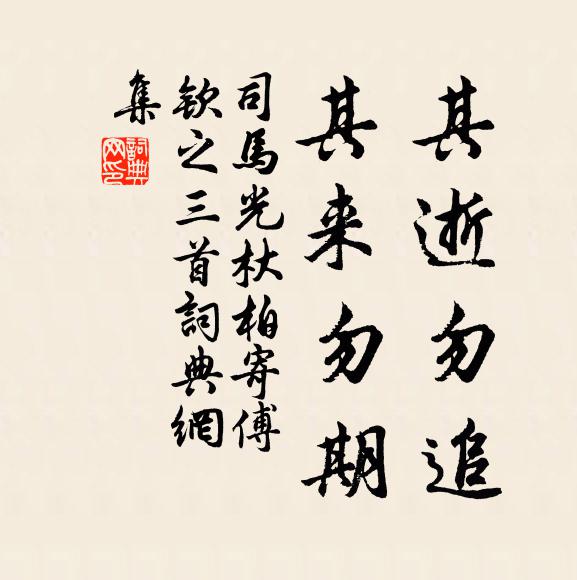 其逝勿追
其来勿期
司馬光杖柏寄傅
欽之三首詞典網
集
詞典
网印